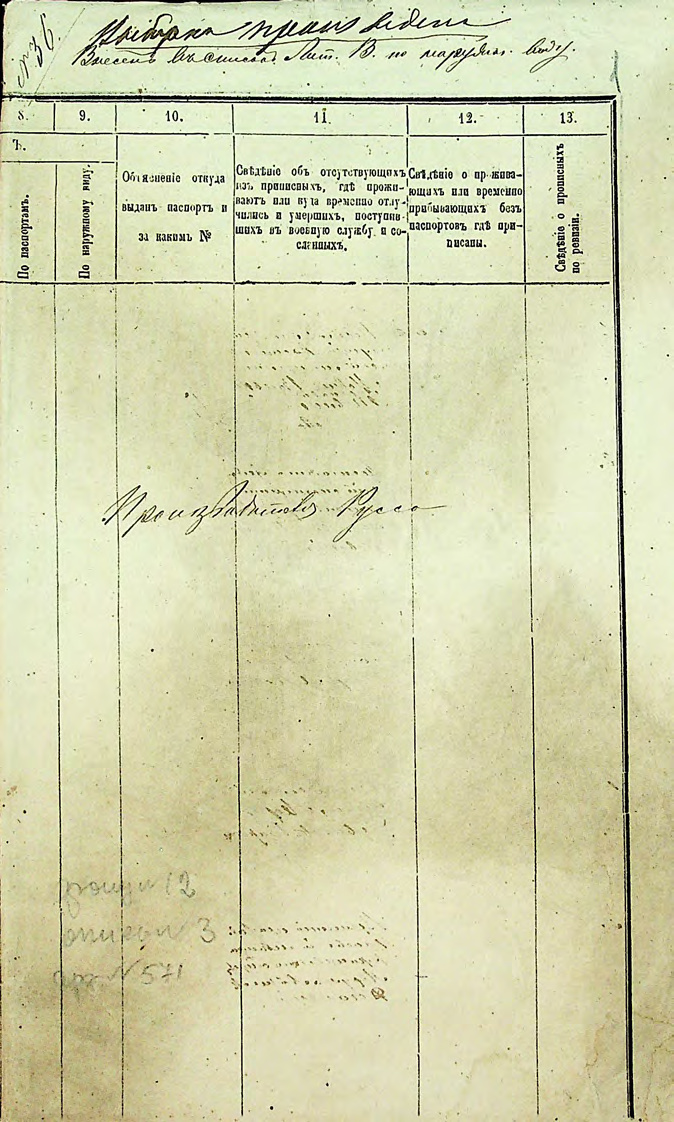 № 36.
Выборка произведена
Внесенъ въ списокъ Лит. В. по наружн. виду.
8. 9. 10. 11. 12. 13.
Ъ.
По паспортамъ.
По наружному виду.
Объясненіе откуда
выданъ паспортъ и
за какимъ №
Свѣдѣніе объ отсутствующихъ
изъ приписныхъ, гдѣ прожи-
ваютъ или куда временно отлу-
чились и умершихъ, поступив-
шихъ въ военную службу и со-
сланныхъ.
Свѣдѣніе о прожива-
ющихъ или временно
прибывающихъ безъ
паспортовъ гдѣ при-
писаны.
Свѣдѣніе о прописныхъ
по ревизіи.
Руссо
фонд 12
описи 3
арх. № 571